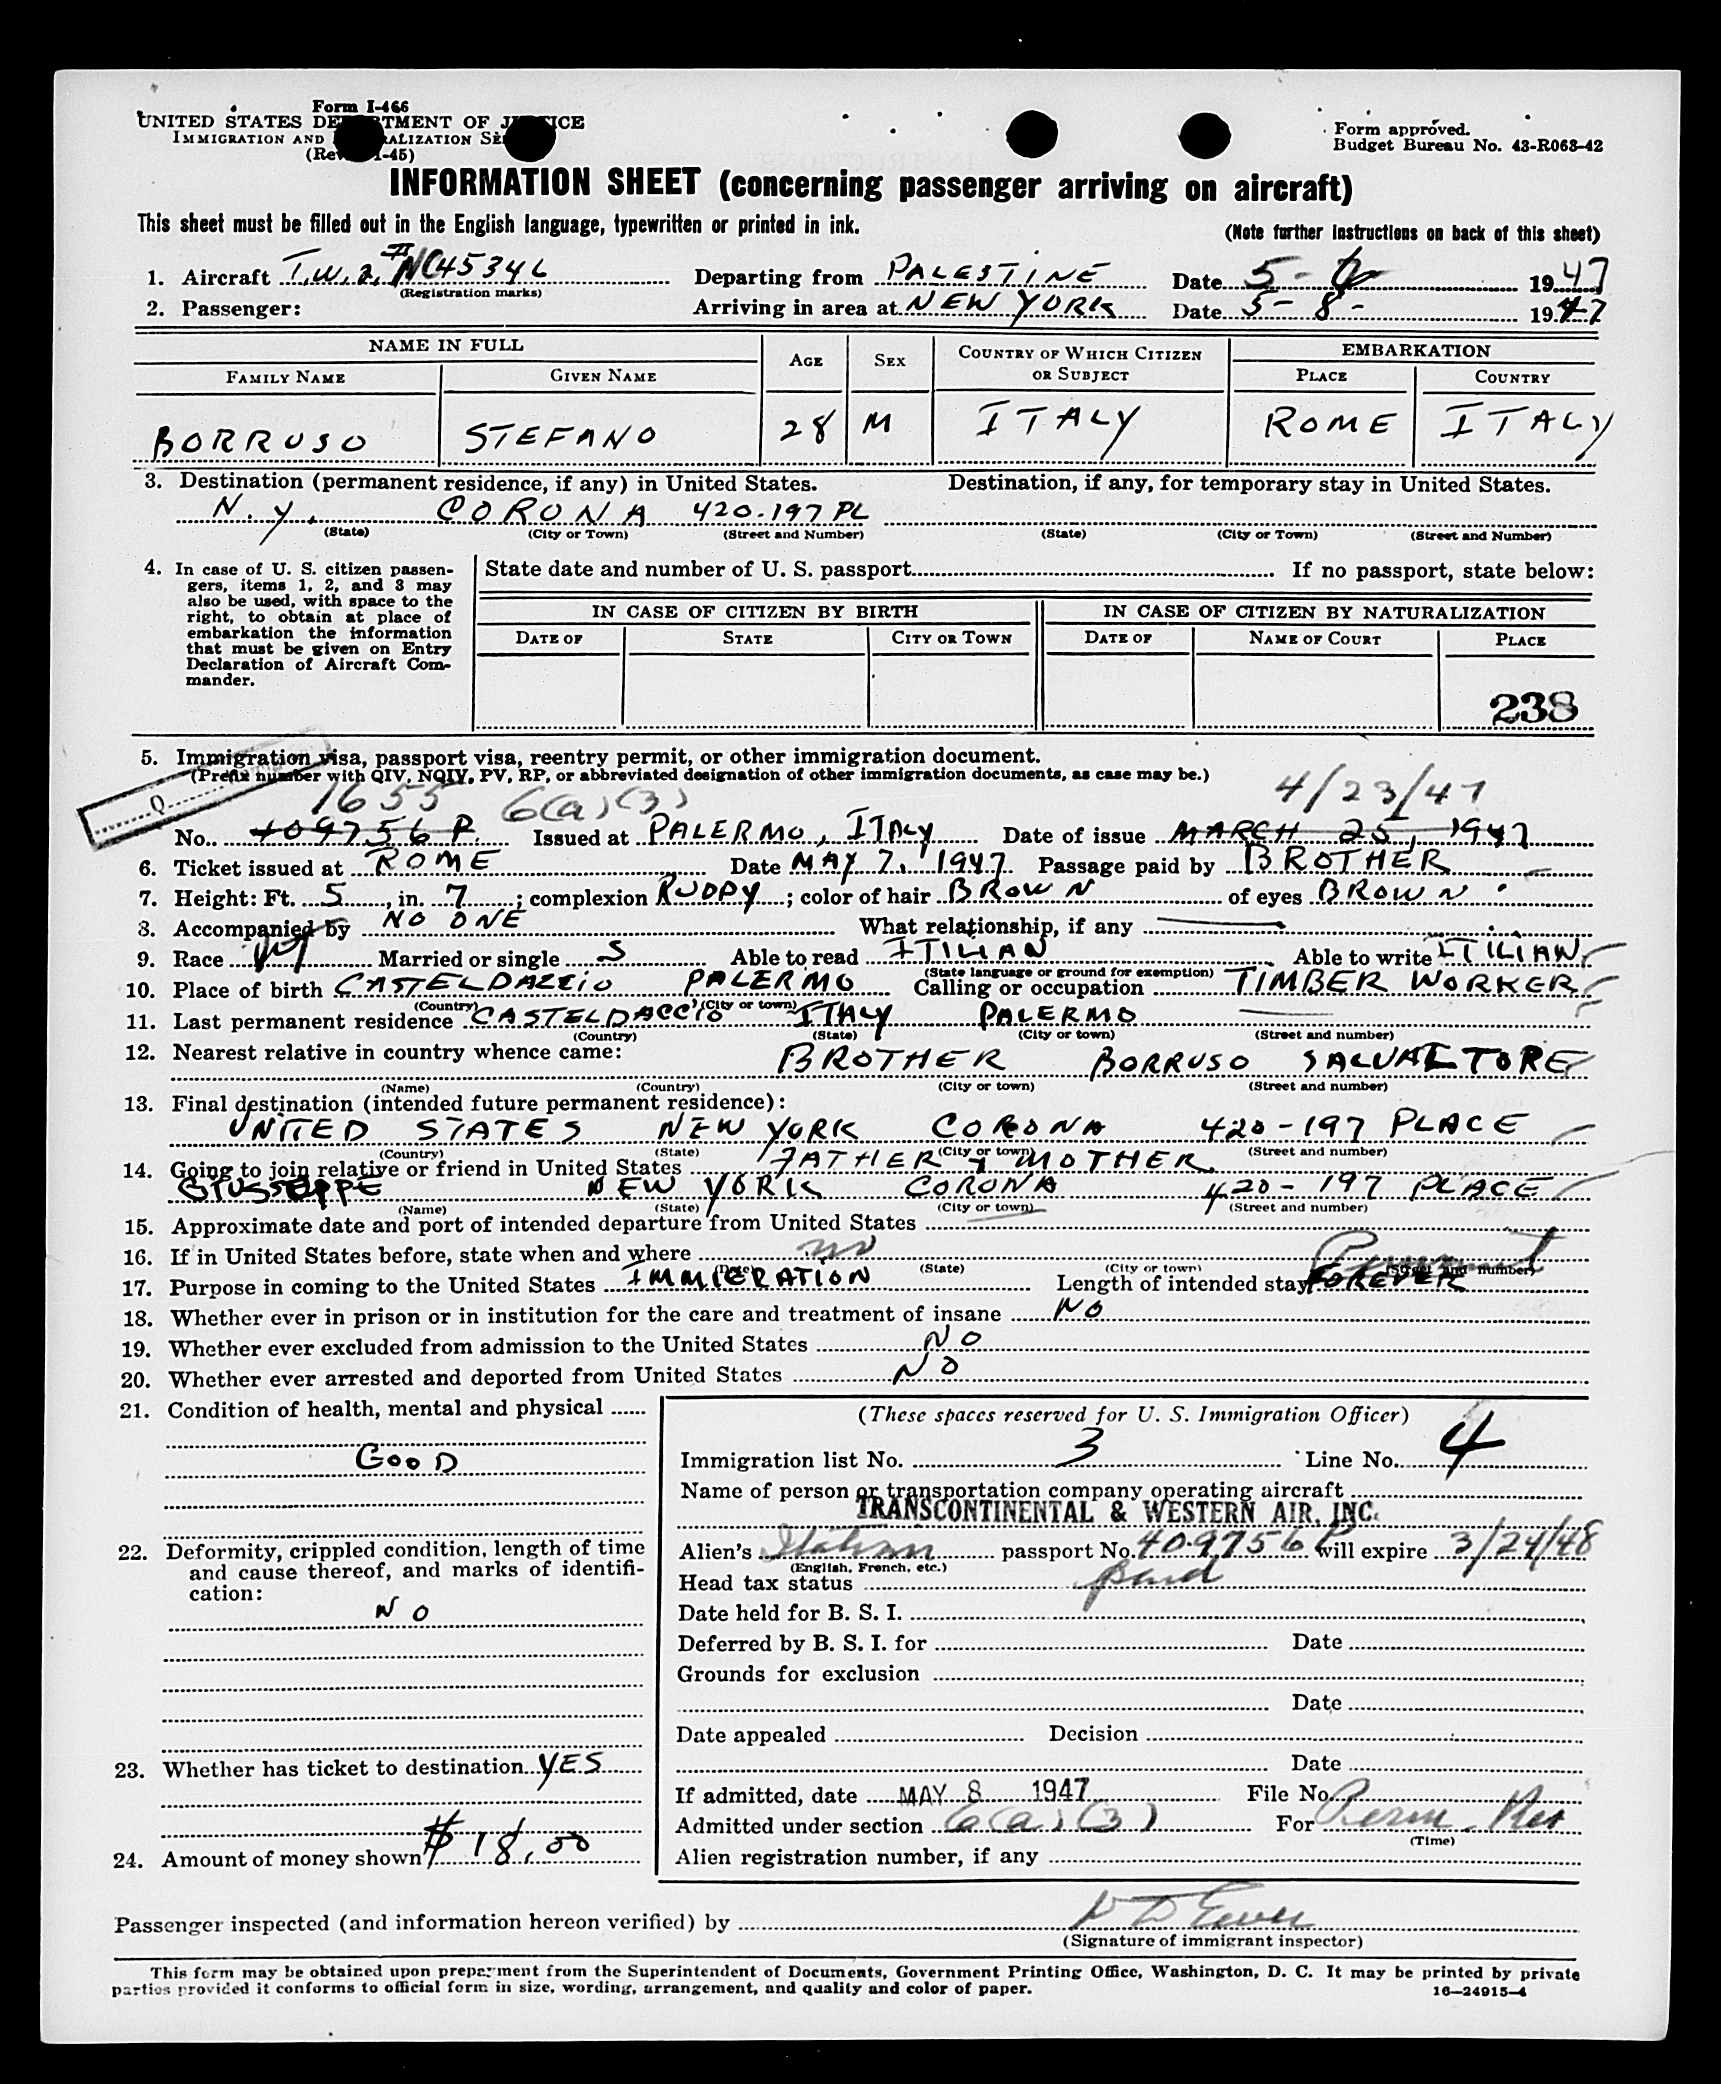 Form I-466
UNITED STATES DEPARTMENT OF JUSTICE
IMMIGRATION AND NATURALIZATION SERVICE
(Rev. 1-45)
Form approved.
Budget Bureau No. 43-R063-42
INFORMATION SHEET (concerning passenger arriving on aircraft)
This sheet must be filled out in the English language, typewritten or printed in ink.
(Note further instructions on back of this sheet)
1. Aircraft T.W.A. # NC45346 Departing from PALESTINE Date 5- 1947
(Registration marks)
2. Passenger: Arriving in area at NEW YORK Date 5-8- 1947
NAME IN FULL AGE SEX COUNTRY OF WHICH CITIZEN OR SUBJECT EMBARKATION
FAMILY NAME GIVEN NAME PLACE COUNTRY
BORRUSO STEFANO 28 M ITALY ROME ITALY
3. Destination (permanent residence, if any) in United States. Destination, if any, for temporary stay in United States.
N.Y. CORONA 420-197 PL
(State) (City or Town) (Street and Number) (State) (City or Town) (Street and Number)
4. In case of U. S. citizen passen-
gers, items 1, 2, and 3 may
also be used, with space to the
right, to obtain at place of
embarkation the information
that must be given on Entry
Declaration of Aircraft Com-
mander.
State date and number of U. S. passport If no passport, state below:
IN CASE OF CITIZEN BY BIRTH IN CASE OF CITIZEN BY NATURALIZATION
DATE OF STATE CITY OR TOWN DATE OF NAME OF COURT PLACE
238
5. Immigration visa, passport visa, reentry permit, or other immigration document.
(Prefix number with QIV, NQIV, PV, RP, or abbreviated designation of other immigration documents, as case may be.)
Q 1655 6(a)(3) 4/23/47
No. 409756 P. Issued at PALERMO, ITALY Date of issue MARCH 25, 1947
6. Ticket issued at ROME Date MAY 7. 1947 Passage paid by BROTHER
7. Height: Ft. 5, in. 7; complexion RUDDY; color of hair BROWN of eyes BROWN
8. Accompanied by NO ONE What relationship, if any
9. Race Married or single S Able to read ITILIAN Able to write ITILIAN
(State language or ground for exemption)
10. Place of birth CASTELDAZZIO PALERMO Calling or occupation TIMBER WORKER
(Country) (City or town)
11. Last permanent residence CASTELDACCIO ITALY PALERMO
(Country) (State) (City or town) (Street and number)
12. Nearest relative in country whence came: BROTHER BORRUSO SALVATTORE
(Name) (Country) (City or town) (Street and number)
13. Final destination (intended future permanent residence):
UNITED STATES NEW YORK CORONA 420-197 PLACE
(Country) (State) (City or town) (Street and number)
14. Going to join relative or friend in United States FATHER Y MOTHER
GIUSSEPPE NEW YORK CORONA 420-197 PLACE
(Name) (State) (City or town) (Street and number)
15. Approximate date and port of intended departure from United States
16. If in United States before, state when and where no
(Date) (State) (City or town) (Street and number)
Permanent
17. Purpose in coming to the United States IMMIGRATION Length of intended stay FOREVER
18. Whether ever in prison or in institution for the care and treatment of insane NO
19. Whether ever excluded from admission to the United States NO
20. Whether ever arrested and deported from United States NO
21. Condition of health, mental and physical
GOOD
22. Deformity, crippled condition, length of time
and cause thereof, and marks of identifi-
cation:
NO
23. Whether has ticket to destination YES
24. Amount of money shown $18.00
(These spaces reserved for U. S. Immigration Officer)
Immigration list No. 3 Line No. 4
Name of person or transportation company operating aircraft
TRANSCONTINENTAL & WESTERN AIR, INC.
Alien's Italian passport No. 409756 P will expire 3/24/48
(English, French, etc.)
Head tax status paid
Date held for B. S. I.
Deferred by B. S. I. for Date
Grounds for exclusion
Date
Date appealed Decision
Date
If admitted, date MAY 8 1947 File No.
Admitted under section 6(a)(3) For Perm. Res
(Time)
Alien registration number, if any
Passenger inspected (and information hereon verified) by
(Signature of immigrant inspector)
This form may be obtained upon prepayment from the Superintendent of Documents, Government Printing Office, Washington, D. C. It may be printed by private
parties provided it conforms to official form in size, wording, arrangement, and quality and color of paper.
16—24915-4